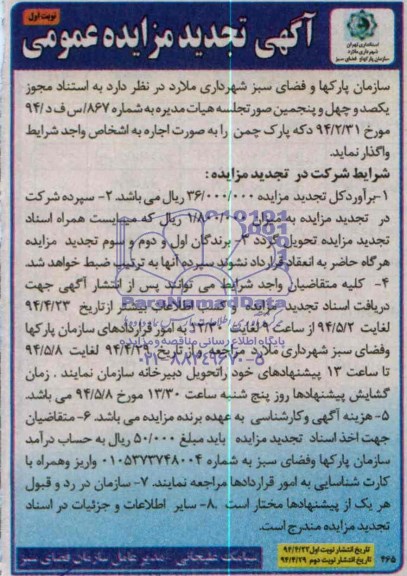 نوبت اول
آگهی تجدید مزایده عمومی
استانداری تهران
شهرداری ملارد
سازمان پارکها و فضای سبز
سازمان پارکها و فضای سبز شهرداری ملارد در نظر دارد به استناد مجوز
یکصد و چهل و پنجمین صورتجلسه هیات مدیره به شماره ۸۶۷/س ف د/۹۴
مورخ ۹۴/۲/۳۱ دکه پارک چمن را به صورت اجاره به اشخاص واجد شرایط
واگذار نماید.
شرایط شرکت در تجدید مزایده :
۱-برآورد کل تجدید مزایده ۳۶/۰۰۰/۰۰۰ ریال می باشد. ۲- سپرده شرکت
در تجدید مزایده به میزان ۱/۸۰۰/۰۰۰ ریال که میبایست همراه اسناد
تجدید مزایده تحویل گردد ۳- برندگان اول و دوم و سوم تجدید مزایده
هرگاه حاضر به انعقاد قرارداد نشوند سپرده آنها به ترتیب ضبط خواهد شد.
۴- کلیه متقاضیان واجد شرایط می توانند پس از انتشار آگهی جهت
دریافت اسناد تجدید مزایده و کسب اطلاعات بیشتر از تاریخ ۹۴/۴/۲۳
لغایت ۹۴/۵/۲ از ساعت ۹ لغایت ۱۲/۳۰ به امور قراردادهای سازمان پارکها
وفضای سبز شهرداری ملارد مراجعه و از تاریخ ۹۴/۴/۲۹ لغایت ۹۴/۵/۸
تا ساعت ۱۳ پیشنهادهای خود راتحویل دبیرخانه سازمان نمایند . زمان
گشایش پیشنهادها روز پنج شنبه ساعت ۱۳/۳۰ مورخ ۹۴/۵/۸ می باشد.
۵- هزینه آگهی و کارشناسی به عهده برنده مزایده می باشد. ۶- متقاضیان
جهت اخذ اسناد تجدید مزایده باید مبلغ ۵۰/۰۰۰ ریال به حساب درآمد
سازمان پارکها وفضای سبز به شماره ۰۱۰۵۳۷۳۷۴۸۰۰۴ واریز وهمراه با
کارت شناسایی به امور قراردادها مراجعه نمایند. ۷- سازمان در رد و قبول
هر یک از پیشنهادها مختار است .۸- سایر اطلاعات و جزئیات در اسناد
تجدید مزایده مندرج است.
ParsNamadData
پایگاه اطلاع رسانی مناقصه و مزایده
۰۲۱-۸۸۳۴۹۶۷۰-۵
۴۶۵
تاریخ انتشار نوبت اول ۹۴/۴/۲۲
تاریخ انتشار نوبت دوم ۹۴/۴/۲۹
علیخانی - مدیر عامل سازمان فضای سبز